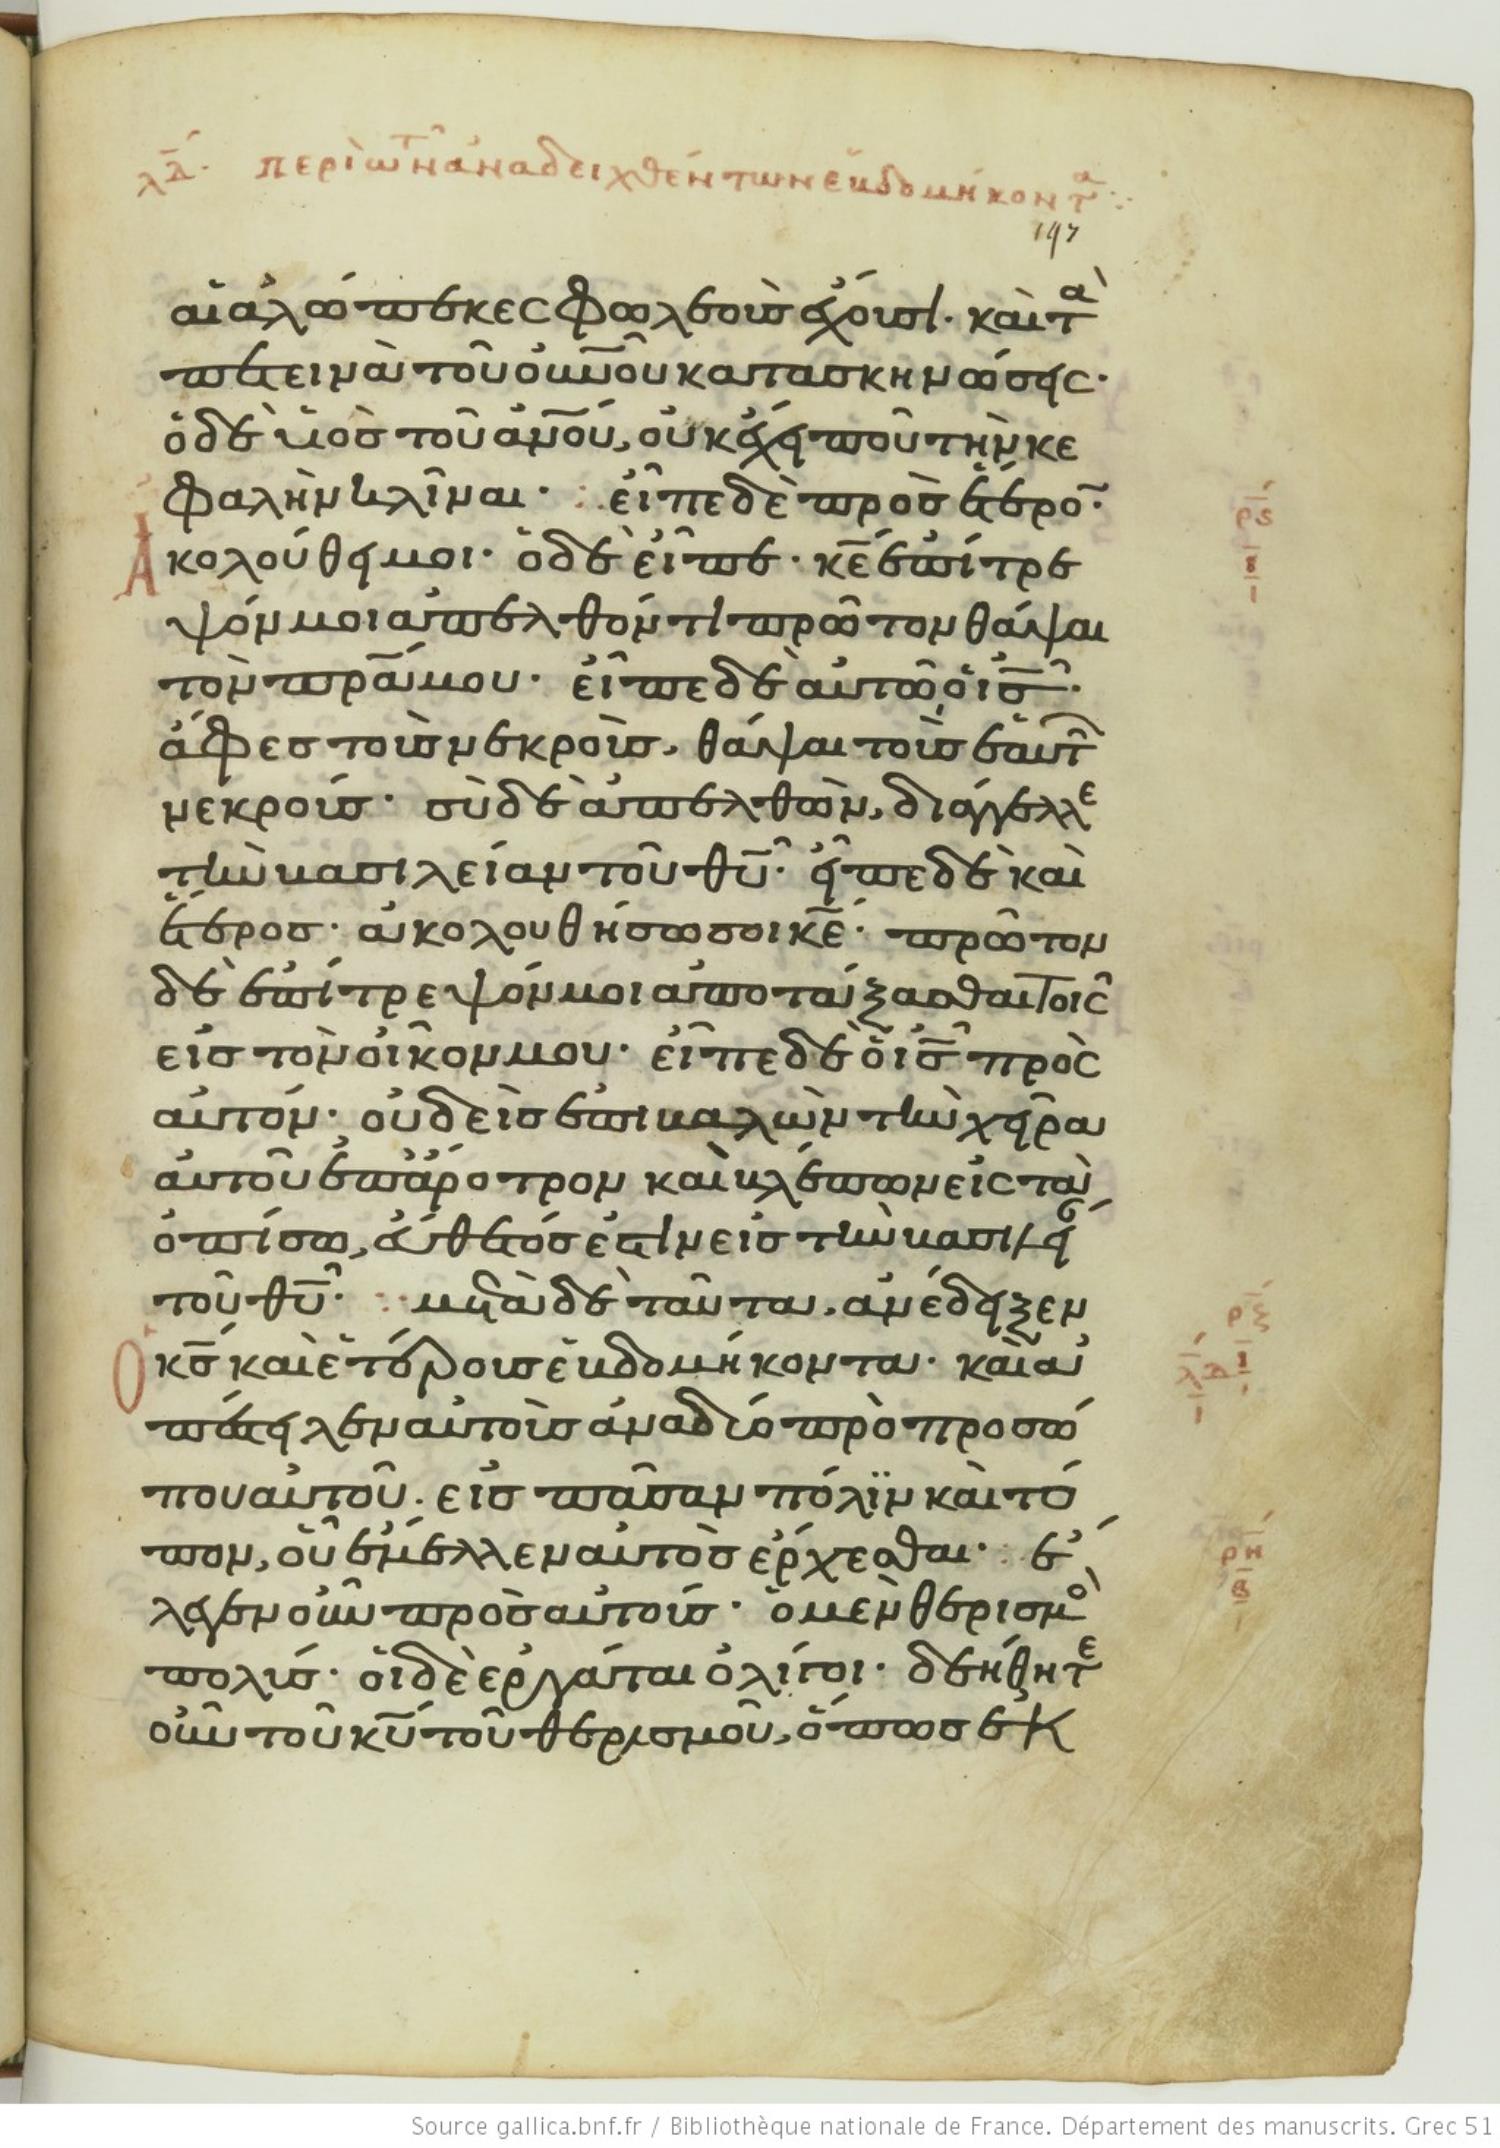 λδ. περὶ τῶν ἀναδειχθέντων ἑβδομήκοντα
197
αἱ ἀλώπεκες φωλεοὺς ἔχουσι· καὶ τὰ
πετεινὰ τοῦ οὐνοῦ κατασκηνώσεις·
ὁ δὲ υἱὸς τοῦ ἀνου, οὐκ ἔχει ποῦ τὴν κε
φαλὴν κλῖναι· εἶπε δὲ πρὸς ἕτερον·
Ἀκολούθει μοι· ὁ δὲ εἶπε· κε ἐπίτρε
ψόν μοι ἀπελθόντι πρῶτον θάψαι
τὸν πρα μου· εἶπε δὲ αὐτῶ ὁ ις·
ἄφες τοὺς νεκροὺς, θάψαι τοὺς ἑαυτῶν
νεκρούς· σὺ δὲ ἀπελθὼν, διάγγελλε
τὴν βασιλείαν τοῦ θυ· εἶπε δὲ καὶ
ἕτερος· ἀκολουθήσω σοι κε· πρῶτον
δὲ ἐπίτρεψόν μοι ἀποτάξασθαι τοῖς
εἰς τὸν οἶκον μου· εἶπε δὲ ὁ ις πρὸς
αὐτόν· οὐδεὶς ἐπιβαλὼν τὴν χεῖρα
αὐτοῦ ἐπ' ἄροτρον καὶ βλέπων εἰς τὰ
ὀπίσω, εὔθετός ἐστιν εἰς τὴν βασιλείαν
τοῦ θυ· μετὰ δὲ ταῦτα, ἀνέδειξεν
Ὁ κς καὶ ἑτέρους ἑβδομήκοντα· καὶ ἀ
πέστειλεν αὐτοὺς ἀνὰ δύο πρὸ προσώ
που αὐτοῦ· εἰς πᾶσαν πόλϊν καὶ τό
πον, οὗ ἔμελλεν αὐτὸς ἔρχεσθαι· ἔ
λεγεν οὖν πρὸς αὐτούς· ὁ μὲν θερισμὸς
πολύς· οἱ δὲ ἐργάται ὀλίγοι· δεήθητε
οὖν τοῦ κυ τοῦ θερισμοῦ, ὅπως ἐκ
ρς
ι
ρζ
λδ ι
ρη
β
Source gallica.bnf.fr / Bibliothèque nationale de France. Département des manuscrits. Grec 51